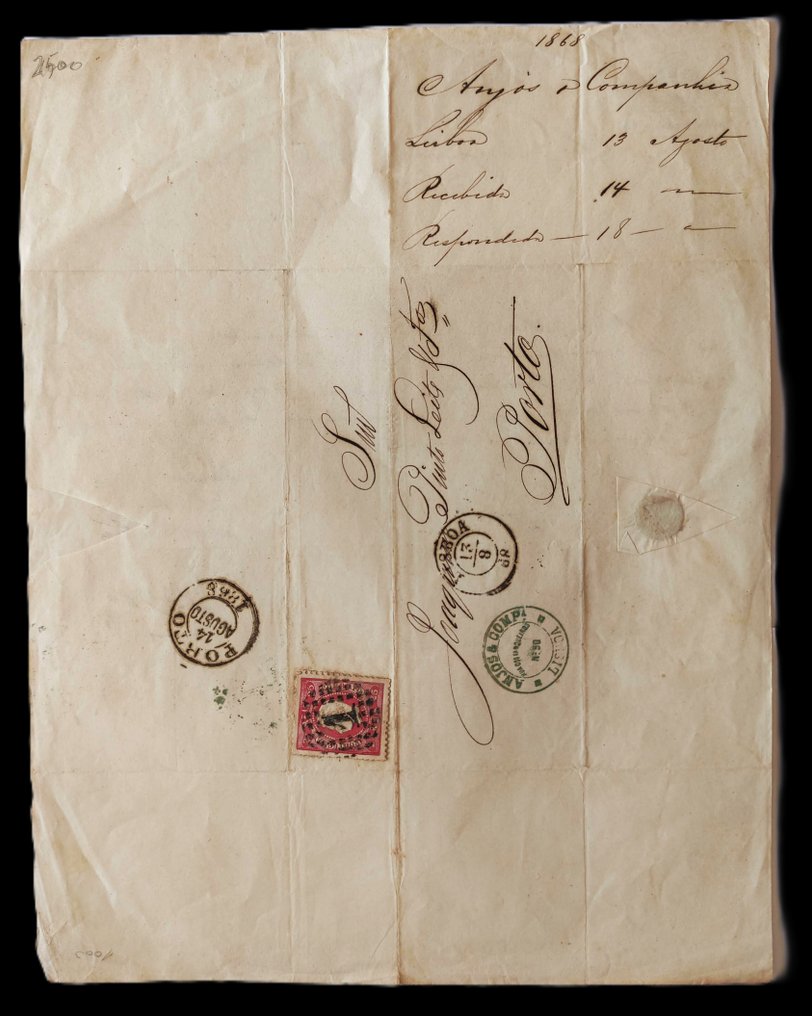 2500
1868
Anjos & Companhia
Lisboa 13 Agosto
Recebida 14
Respondida — 18 —
Snr
Joaqm Pinto Leite & Fos
Porto.
LISBOA
8
68
PORTO
14
AGUSTO
1868
ANJOS & COMPA
LISBOA